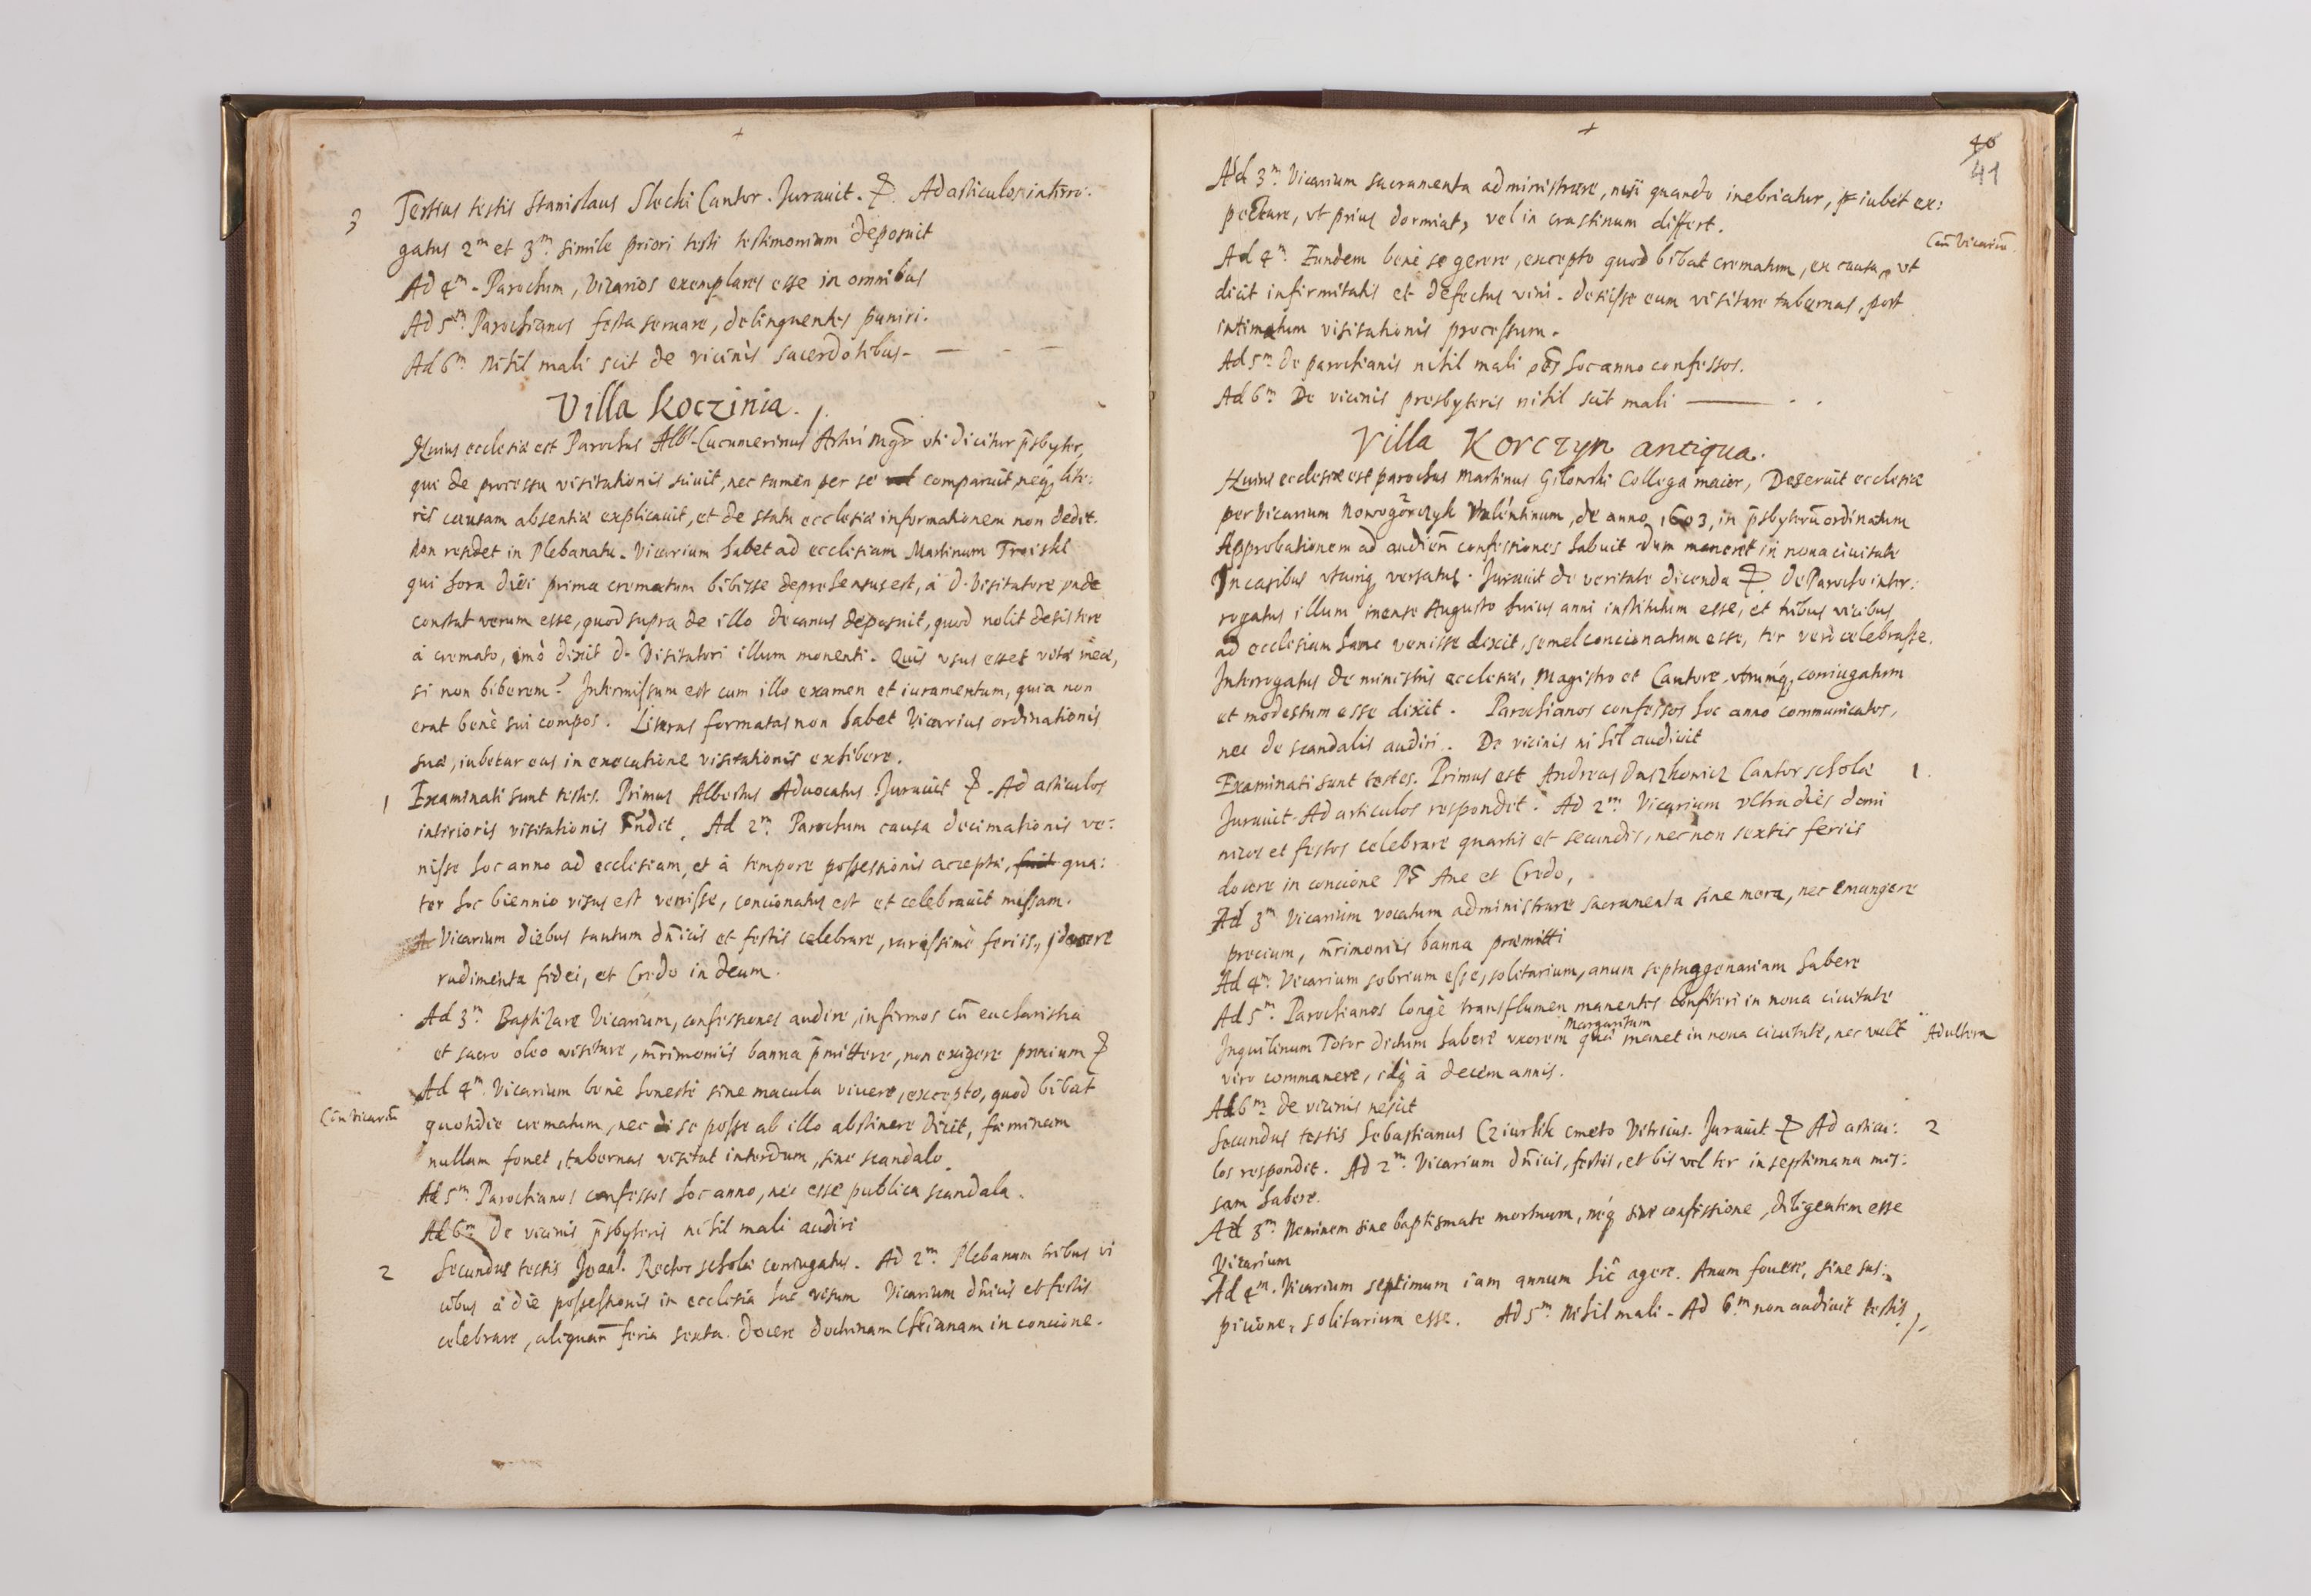 +
3 Tertius testis Stanislaus Slechi Cantor. Jurauit. Ad articulos interro:
gatus 2m et 3m simile priori testi testimonium deposuit
Ad 4m. Parochum, Vicarios exemplares esse in omnibus
Ad 5m Parochianos festa seruare, delinquentes puniri.
Ad 6m Nihil mali scit de vicinis sacerdotibus. — - —
Villa Koczinia.
Huius ecclesiæ est Parochus Albs Cucumerinus Artiũ Mgr vti dicitur p̃sbyter,
qui de processu visitationis sciuit, nec tamen per se comparuit, neq; lite:
ris causam absentiæ explicauit, et de statu ecclesiæ informationem non dedit.
Non residet in Plebanatu. Vicarium habet ad ecclesiam Martinum Troiski
qui hora diei prima crematum bibisse deprehensus est, à D. Visitatore, vnde
constat verum esse, quod supra de illo decanus deposuit, quod nolit desistere
à cremato, imò dixit D. Visitatori illum monenti. Quis vsus esset vitæ meæ,
si non biberem? Intermissum est cum illo examen et iuramentum, quia non
erat benè sui compos. Literas formatas non habet Vicarius ordinationis
suæ, iubetur eas in executione visitationis exhibere.
1 Examinati sunt testes. Primus Albertus Aduocatus. Jurauit. Ad articulos
interioris visitationis rñdit. Ad 2m Parochum causa decimationis ve:
nisse hoc anno ad ecclesiam, et à tempore possessionis acceptæ, fuit qua:
ter hoc biennio visus est venisse, concionatus est et celebrauit missam.
Vicarium diebus tantum dñicis et festis celebrare, rarissimè feriis, docere
rudimenta fidei, et Credo in deum.
Ad 3m Baptizare Vicarium, confessiones audire, infirmos cũ eucharistia
et sacro oleo visitare, m̃rimoniis banna p̃mittere, non exigere præcium
Ad 4m Vicarium benè honestè sine macula viuere, excepto, quod bibat
Coñ vicariũ
quotidie crematum, nec se posse ab illo abstinere dicit, fæminam
nullam fouet, tabernas visitat interdum, sine scandalo.
Ad 5m Parochianos confessos hoc anno, nec esse publica scandala.
Ad 6m De vicinis p̃sbyteris nihil mali audiri
2 Secundus testis Joañ. Rector scholæ coniugatus. Ad 2m Plebanum tribus vi
cibus à die possessionis in ecclesia hac visum Vicarium dñicis et festis
celebrare, aliquañ feria sexta. Docere doctrinam Chr̃ianam in concione.
+
40
41
Ad 3m Vicarium sacramenta administrare, nisi quando inebriatur, iubet ex:
pectare, vt prius dormiat, vel in crastinum differt.
Coñ Vicariũ
Ad 4m Eundem benè se gerere, excepto quod bibat crematum, ex causa, vt
dicit infirmitatis et defectus vini. Desiisse eum visitare tabernas, post
intimatum visitationis processum.
Ad 5m de parochianis nihil mali oẽs hoc anno confessos.
Ad 6m De vicinis presbyteris nihil scit mali — . .
Villa Korczyn antiqua.
Huius ecclesiæ est parochus Martinus Gilowski Collega maior, Deseruit ecclesiæ
per Vicarium Nowogorczyk Valentinum, de anno 1603, in p̃sbyterũ ordinatum
Approbationem ad audieñ confessiones habuit dum maneret in noua ciuitate
In casibus vtcunq; versatus. Jurauit de veritate dicenda De Parocho inter:
rogatus illum mense Augusto huius anni institutum esse, et tribus vicibus
ad ecclesiam hanc venisse dixit, semel concionatum esse, ter verò celebrasse.
Interrogatus de ministris ecclesiæ, Magistro et Cantore, vtrumq; coniugatum
et modestum esse dixit. Parochianos confessos hoc anno communicatos,
nec de scandalis audiri. De vicinis nihil audiuit
Examinati sunt testes. Primus est Andreas Daszkowicz Cantor scholæ 1.
Jurauit. Ad articulos respondit. Ad 2m Vicarium vltra dies domi
nicos et festos celebrare quartis et secundis, nec non sextis feriis
docere in concione Pr̃ Aue et Credo,
Ad 3m Vicarium vocatum administrare sacramenta sine mora, nec emungere
precium, m̃rimoniis banna præmitti
Ad 4m Vicarium sobrium esse, solitarium, anum septuagenariam habere
Ad 5m Parochianos longè trans flumen manentes confiteri in noua ciuitate
Inquilinum Totor dictum habere vxorem Margaritam quæ manet in noua ciuitate, nec vult Adultera
viro commanere, idq; à decem annis.
Ad 6m de vicinis nescit
Secundus testis Sebastianus Cziurlik cmeto Vitricus. Jurauit Ad articu: 2
los respondit. Ad 2m Vicarium dñicis, festis, et bis vel ter in septimana mis:
sam habere.
Ad 3m Neminem sine baptismate mortuum, neq; sine confessione, diligentem esse
Vicarium
Ad 4m. Vicarium septimum iam annum hic agere. Anum fouere, sine sus:
picione, solitarium esse. Ad 5m Nihil mali. Ad 6m non audiuit testis